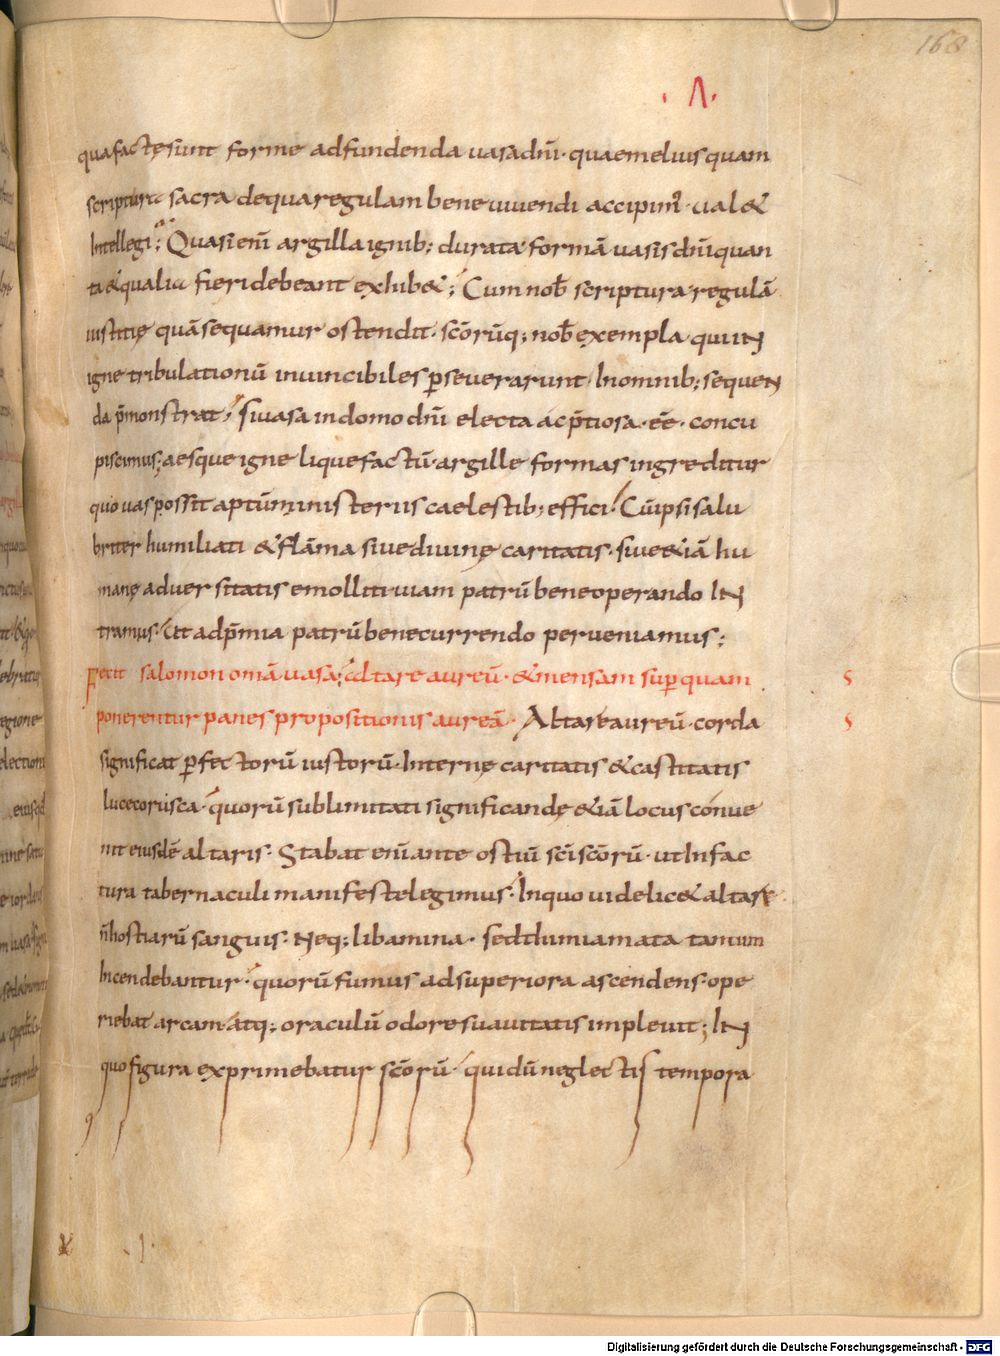 168
· Λ ·
qua factę sunt formę ad fundenda uasa dn̄i · quae melius quam
scriptura sacra de qua regulam bene uiuendi accipim᷒ · ual&
Intellegi; Quasi eni͞ argilla ignib; durata formā uasis dn̄i quan
ta & qualia fieri debeant exhib&; Cum nob̄ scriptura regulā
iustitię quā sequamur ostendit · sc̄orūq; nob̄ exempla qui iN
igne tribulationū inuincibiles p̱seuerarunt In omnib; sequeN
da p̄monstrat; Si uasa in domo dn̄i electa ac p̄tiosa · eē · concu
piscimus; aes que igne liquefactū · argillę formas ingreditur
quo uas possit aptū ministeriis caelestib; effici · Cū ipsi salu
briter humiliati & flāma siue diuinę caritatis · siue &iā hu
manę aduersitatis emolliti uiam patrū bene operando IN
tramus · Ut ad p̄mia patrū bene currendo perueniamus;
Fecit salomon omā uasa; altare aureū · & mensam sup̱ quam
S
ponerentur panes propositionis aureā · Altare aureū · corda
S
significat p̱fectorū iustorū · Internę caritatis & castitatis
luce corusca · quorū sublimitati significandę &iā locus conue
nit eiusdē altaris · Stabat eni͞ ante ostiū sc̄i sc̄orū · ut In fac
tura tabernaculi manifeste legimus · In quo uidelic& altare
n̄ hostiarū sanguis · Neq; libamina · sed thimiamata tantum
Incendebantur · quorū fumus ad superiora ascendens · ope
riebat arcam · atq; oraculū odore suauitatis impleuit; IN
quo figura exprimebatur sc̄orū · qui dū neglectis tempora
Digitalisierung gefördert durch die Deutsche Forschungsgemeinschaft - DFG